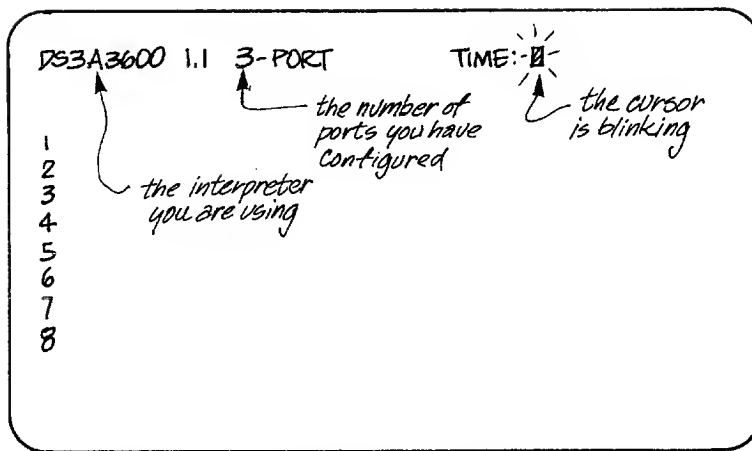 DS3A3600 1.1 3-PORT TIME:
the number of
ports you have
configured
the cursor
is blinking
the interpreter
you are using
1
2
3
4
5
6
7
8